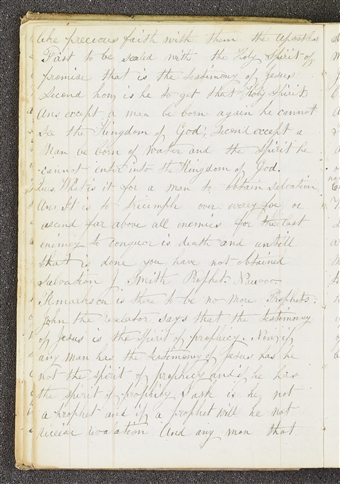 like precious faith with them the apostles
First to be sealed with the Holy Spirit of
promise that is the testimony of Jesus
Second how is he to get that Holy Spirit
Ans except a man be born again he cannot
see the Kingdom of God, Second except a
Man be born of water and the Spirit he
cannot enter into the Kingdom of God.
Ques What is it for a man to obtain salvation
Ans It is to triumph over every foe or
ascend far above all enemies for the last
enemy to conquer is death and untill
that is done you have not obtained
Salvation J Smith Prophet. Nauvoo
Remarks on is there to be no more Prophets.
John the revelator says that the testimony
of Jesus is the Spirit of prophecy. Now if
any man has the testimony of Jesus has he
not the spirit of prophecy and if he has
the spirit of prophecy I ask is he not
a prophet and if a prophet will he not
receive revelation And any man that